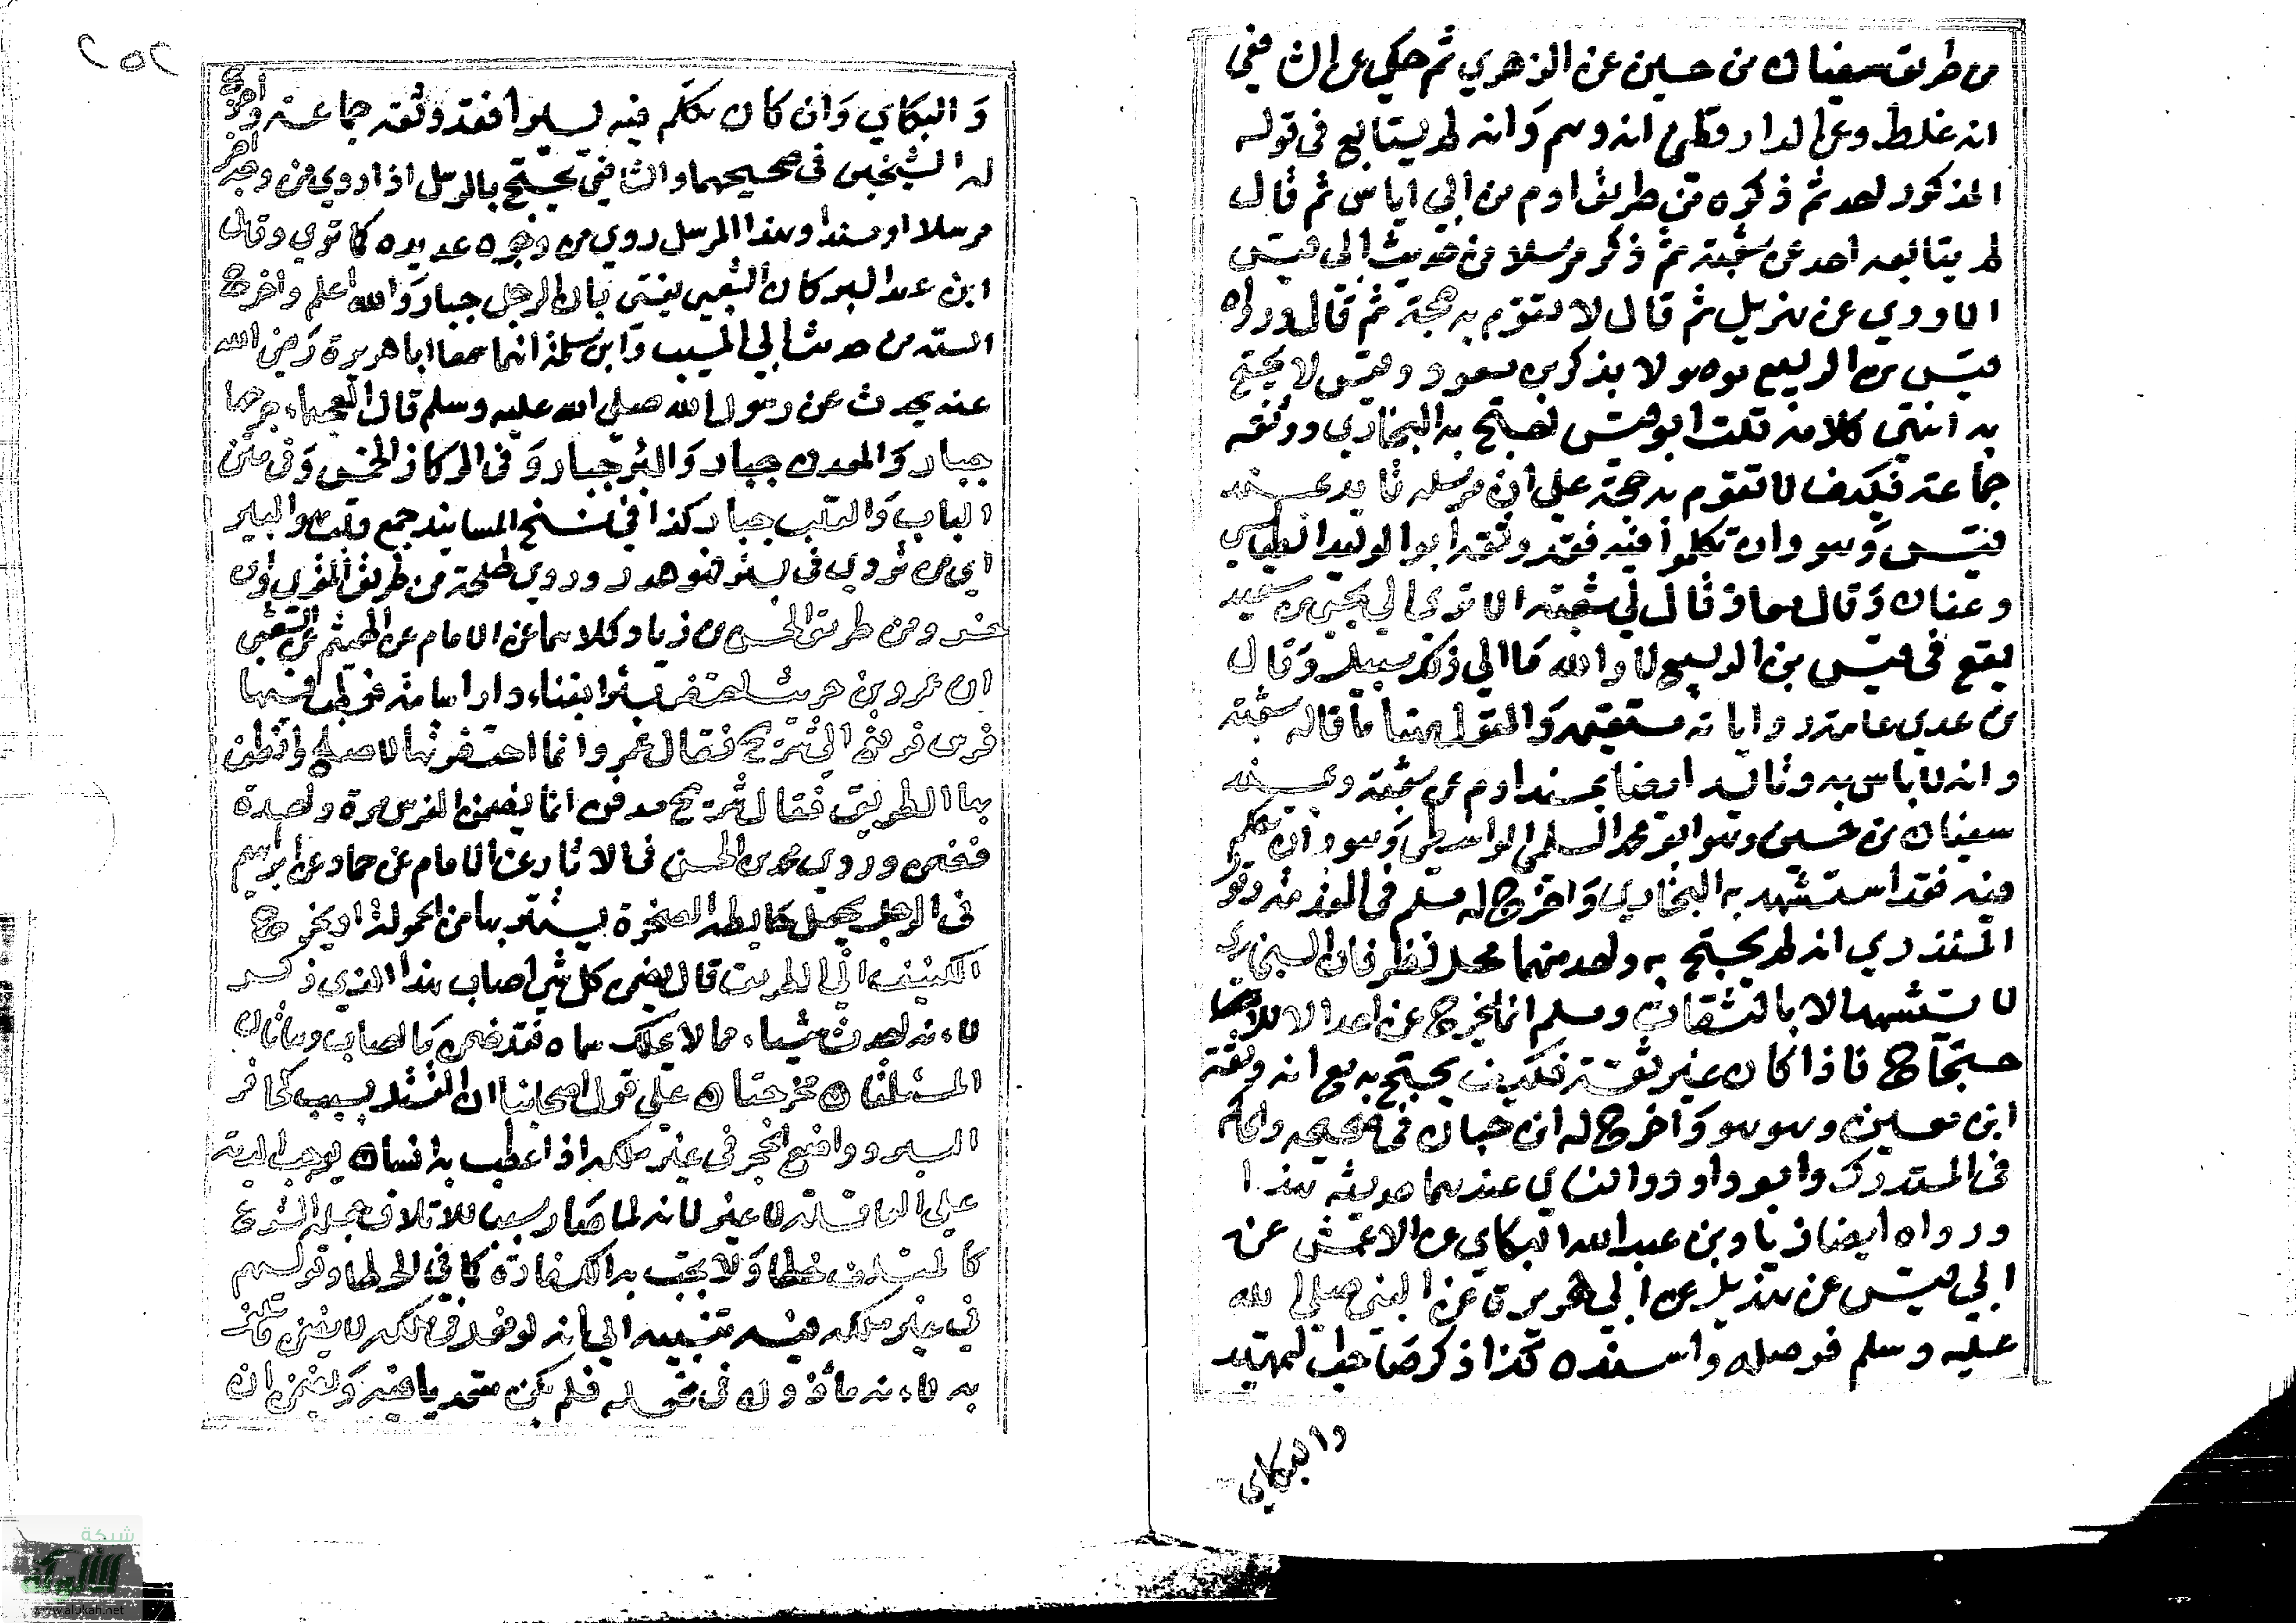 من طريق سفيان بن حسين عن الزهري ثم حكي عن الشافعي
انه غلط وعن الدارقطني انه وهم وانه لم يتابع في قوله
المذكور احد ثم ذكره من طريق ادم بن ابي اياس ثم قال
لم يتابعه احد عن شعبة ثم ذكر مرسلا من حديث ابي قيس
الاودي عن هزيل ثم قال لا تقوم به حجة ثم قال ورواه
قيس بن الربيع موصولا بذكر بن مسعود وقيس لا يحتج
به انتهي كلامه قلت ابو قيس احتج به البخاري ووثقه
جماعة فكيف لا تقوم به حجة علي ان مرسله تايد بمسند
قيس وهو وان تكلموا فيه فقد وثقه ابو الوليد الطيالسي
وعفان وقال معاذ قال لي شعبة الا تري الي يحيي بن سعيد
يقع في قيس بن الربيع لا والله ما الي ذلك سبيل وقال
بن عدي عامة رواياته مستقيمة والقول فيها ما قاله شعبة
وانه لا باس به وتايد ايضا بمسند ادم عن شعبة وبمسند
سفيان بن حسين وهو ابو محمد السلمي الواسطي وهو وان تكلم
فيه فقد استشهد به البخاري واخرج له مسلم في المقدمة وقول
المنذري انه لم يحتج به واحد منهما محل نظر فان البخاري
لا يستشهد الا بالثقات ومسلم انما يخرج عن احد الا للا
حتجاج فاذا كان غير ثقة فكيف يحتج به مع انه وثقه
ابن معين وهو هو واخرج له ابن حبان في صحيحه والحاكم
في المستدرك وابو داود والنساي عندهما حديثه هذا
ورواه ايضا زياد بن عبد الله البكاي عن الاعمش عن
ابي قيس عن هذيل عن ابي هريرة عن النبي صلي الله
عليه وسلم فوصله واسنده كذا ذكر صاحب التمهيد
والبكاي
٢٥٢
والبكاي وان كان تكلم فيه يسيرا فقد وثقه جماعة واخرج
له الشيخين في صحيحهما والشافعي يحتج بالمرسل اذا روي من وجه اخر
مرسلا او مسندا وهذا المرسل روي من وجوه عديده كما تري وقال
ابن عبد البر كان الشعبي يفتي بان الرجل جبار والله اعلم واخرج
الستة من حديث ابي المسيب وابن سلمة انهما سمعا ابا هريرة رضي الله
عنه يحدث عن رسول الله صلي الله عليه وسلم قال العجماء جرحها
جبار والمعدن جبار والبئر جبار وفي الركاز الخمس وفي متن
الباب والقلب جبار كذا في نسخ المسانيد جمع قليب وهو البير
اي من تردي في بئر فهو هدر وروي طلحة من طريق المقري وابن
خسرو من طريق الحسن بن زياد كلاهما عن الامام عن الهيثم عن الشعبي
ان عمرو بن حريث احتفر بئرا بفناء دار اسامة فوطئتها
فرس فرفع الي شريح فقال عمرو انما احتفرتها لاصلح واطين
بها الطريق فقال شريح صدقت انما يضمن الفرس مرة واحدة
فضمن وروي محمد بن الحسن في الاثار عن الامام عن حماد عن ابراهيم
في الرجل يجعل في حايطه الصخرة يستتر بها من الحمولة او يخرج
الكنيف الي الطريق قال يضمن كل شئ اصاب هذا الذي ذكر
لانه احدث شيئا مما لا يملك سماه فقد ضمن ما اصاب وهاتان
المسئلتان مخرجتان علي قول اصحابنا ان القتل بسبب كحافر
البير وواضع الحجر في غير ملكه اذا عطب به انسان يوجب الدية
علي العاقلة لا غير لانه لما صار سببا للاتلاف جعله الشرع
كالمتلف خطا ولا يجب به الكفارة كما في الخطا وقولهم
في غير ملكه فيه تنبيه الي انه لو فعل في ملكه لا يضمن ما تلف
به لانه ماذون له في فعله فلم يكن متعديا فيه ويضمن ان
شبكة
الألوكة
www.alukah.net